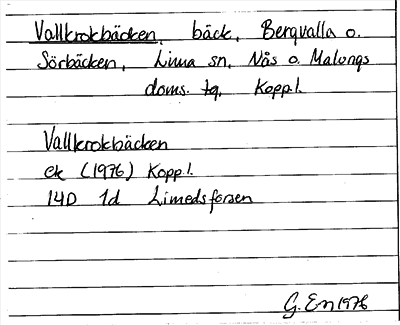 Vallkrokbäcken, bäck, Bergvalla o.
Sörbäcken, Lima sn, Nås o. Malungs
doms. tg, Kopp.l.
Vallkrokbäcken
ek (1976) Kopp.l.
14D 1d Limedsforsen
G. En 1976